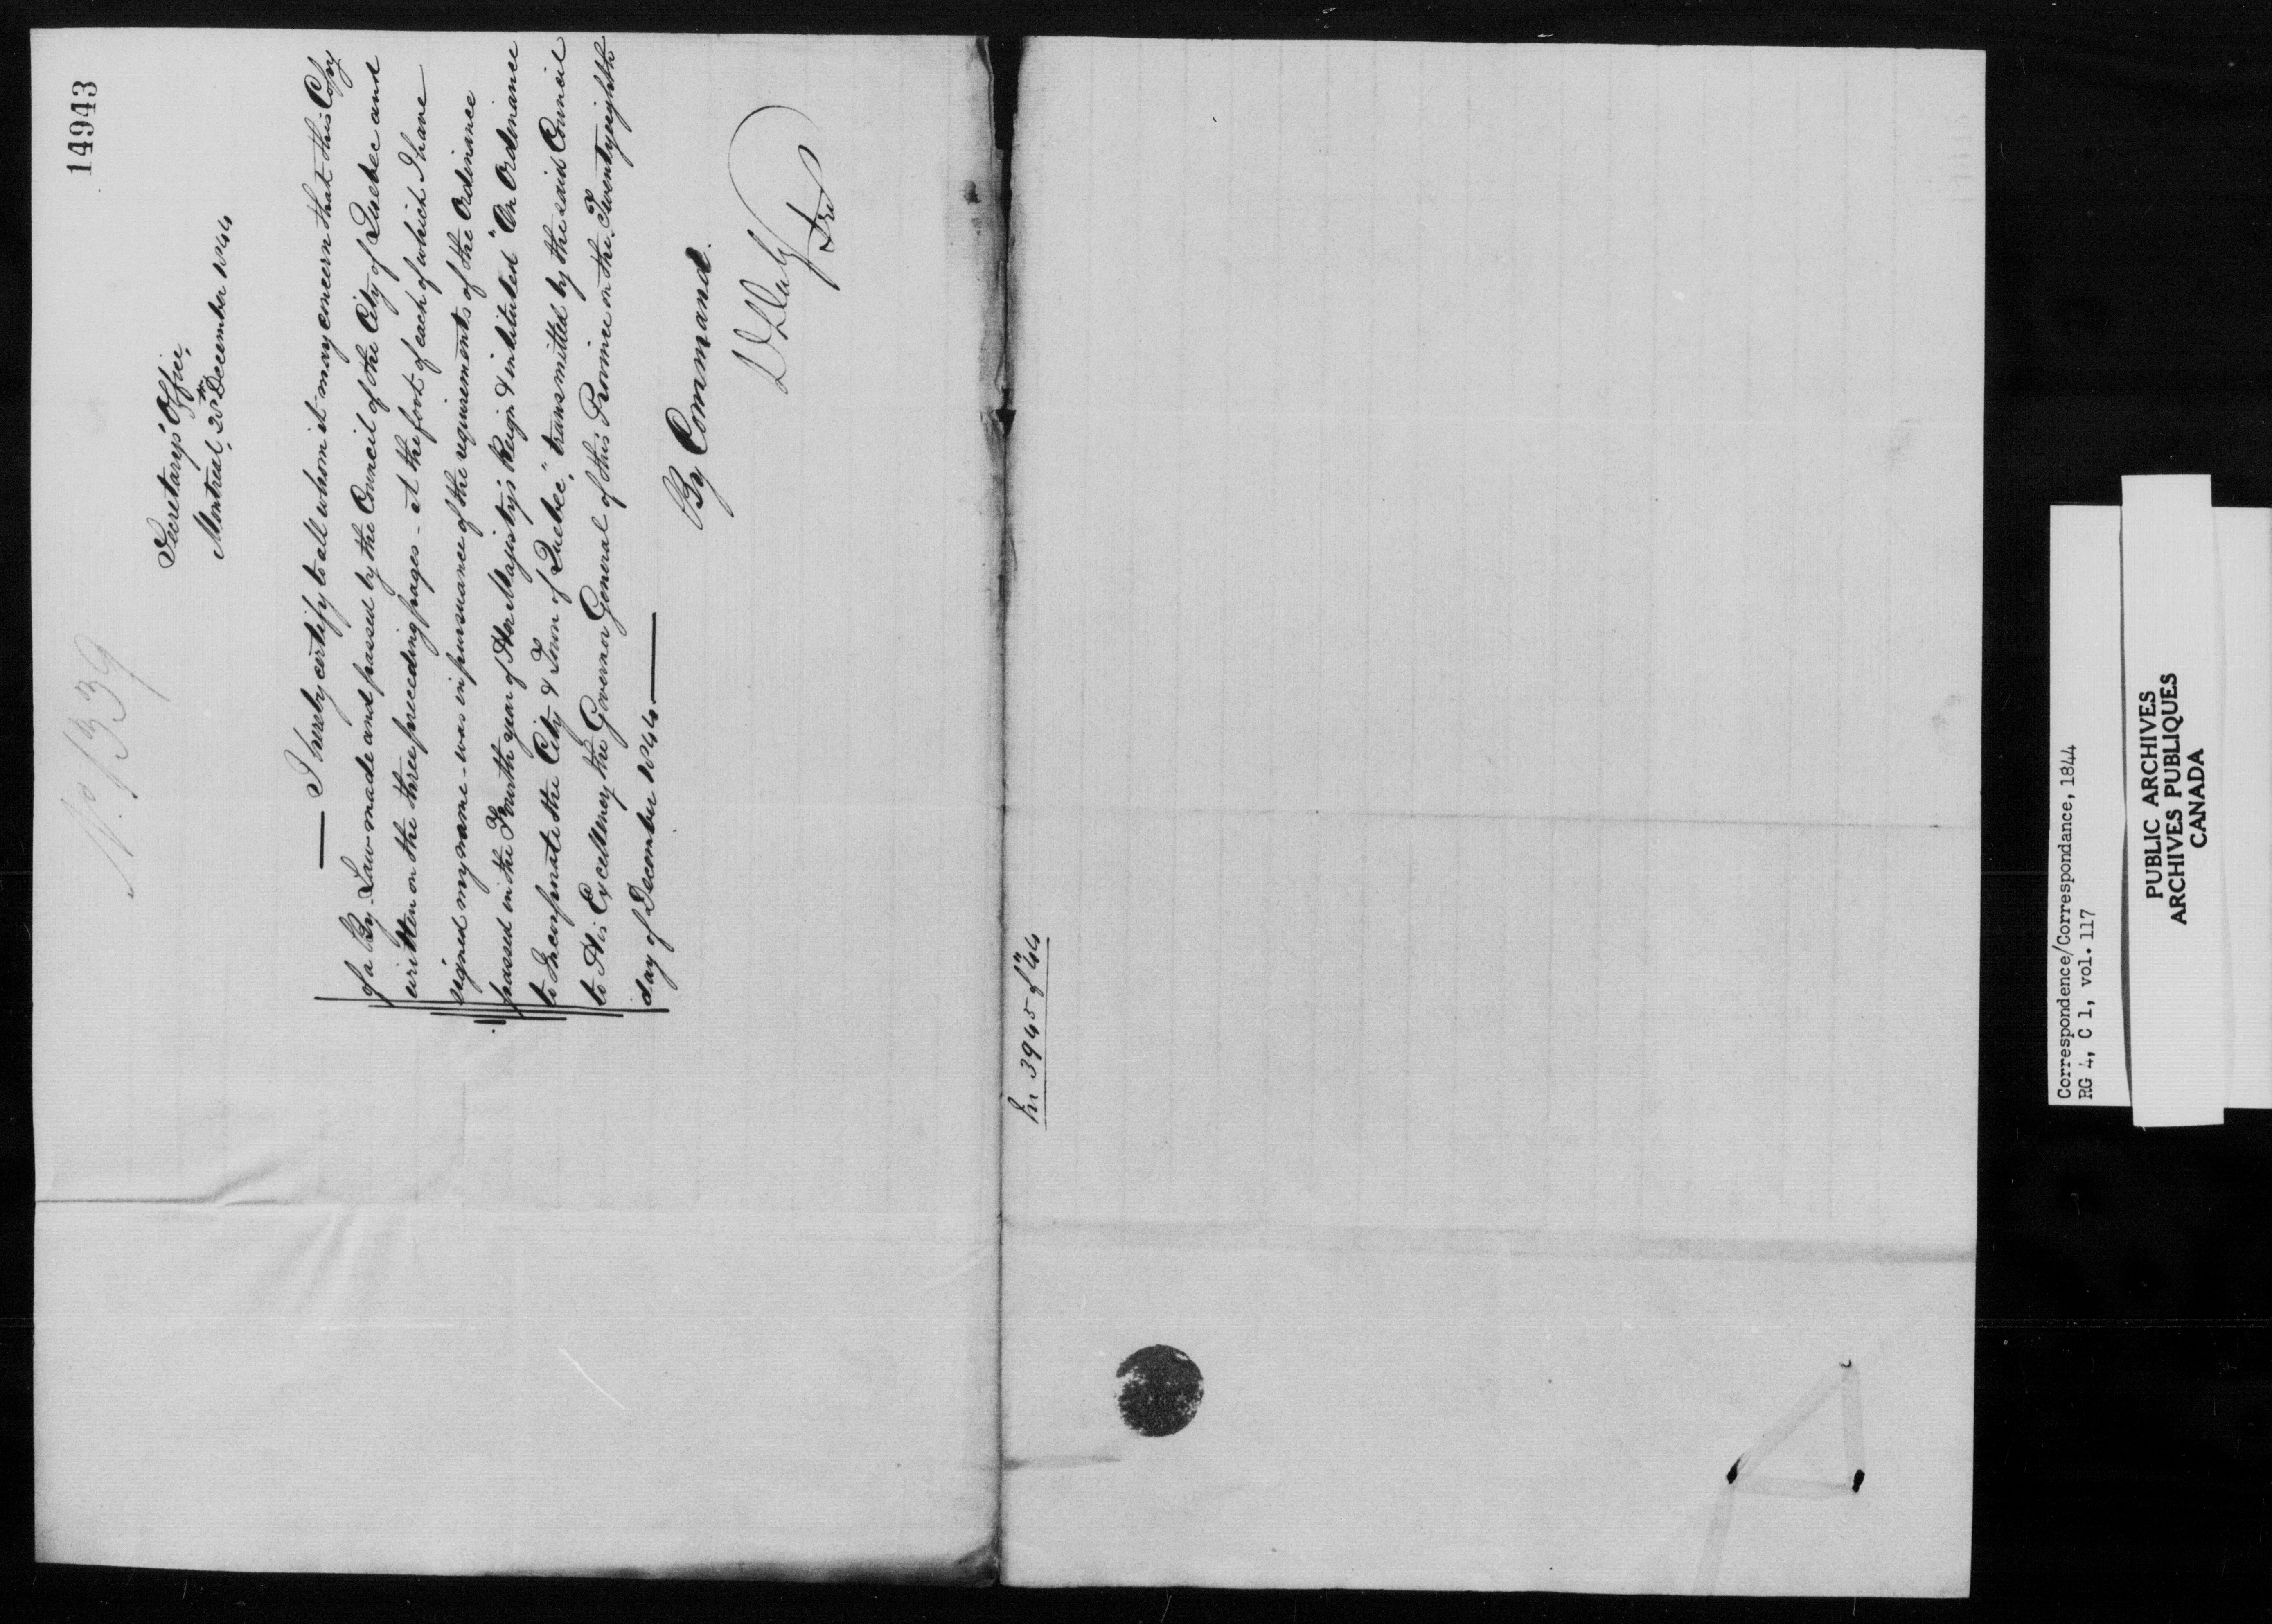 14943
No. 1339
Secretary's Office,
Montreal, 28th December 1844
I hereby certify to all whom it may concern that this Copy
of a By-Law made and passed by the Council of the City of Quebec and
written on the three preceding pages - at the foot of each of which I have
signed my name - was in pursuance of the requirements of the Ordinance
passed in the Fourth year of Her Majesty's Reign & intituled "An Ordinance
to Incorporate the City & Town of Quebec," transmitted by the said Council
to His Excellency the Governor General of this Province on the Twenty eighth
day of December 1844
By Command.
D Daly
Sec
In 3945 of 44
Correspondence/Correspondance, 1844
RG 4, C 1, vol. 117
PUBLIC ARCHIVES
ARCHIVES PUBLIQUES
CANADA